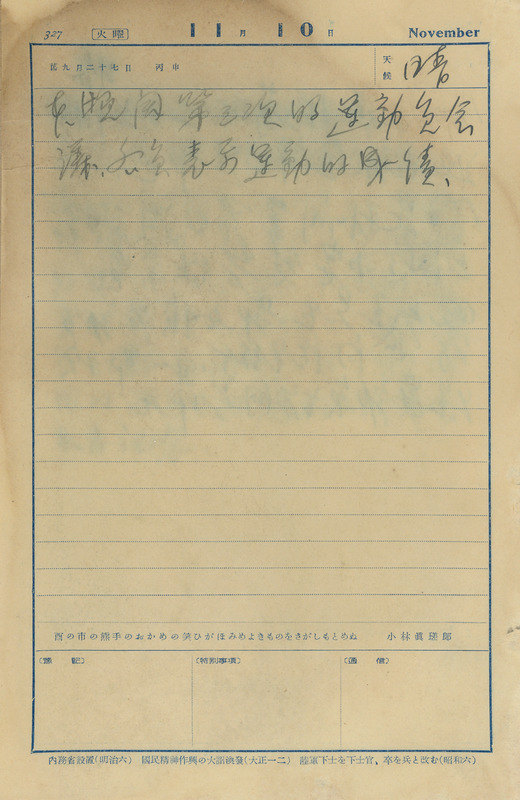 327 火曜 11月10日 November
舊九月二十七日 丙申 天候 晴
本晚開第三次的運動員会
議、各員表示運動的成績、
酉の市の熊手のおかめの笑ひがほみめよきものをさがしもとめぬ 小林眞瑳郎
(豫記) (特別事項) (通信)
內務省設置(明治六) 國民精神作興の大詔渙發(大正一二) 陸軍下士を下士官、卒を兵と改む(昭和六)